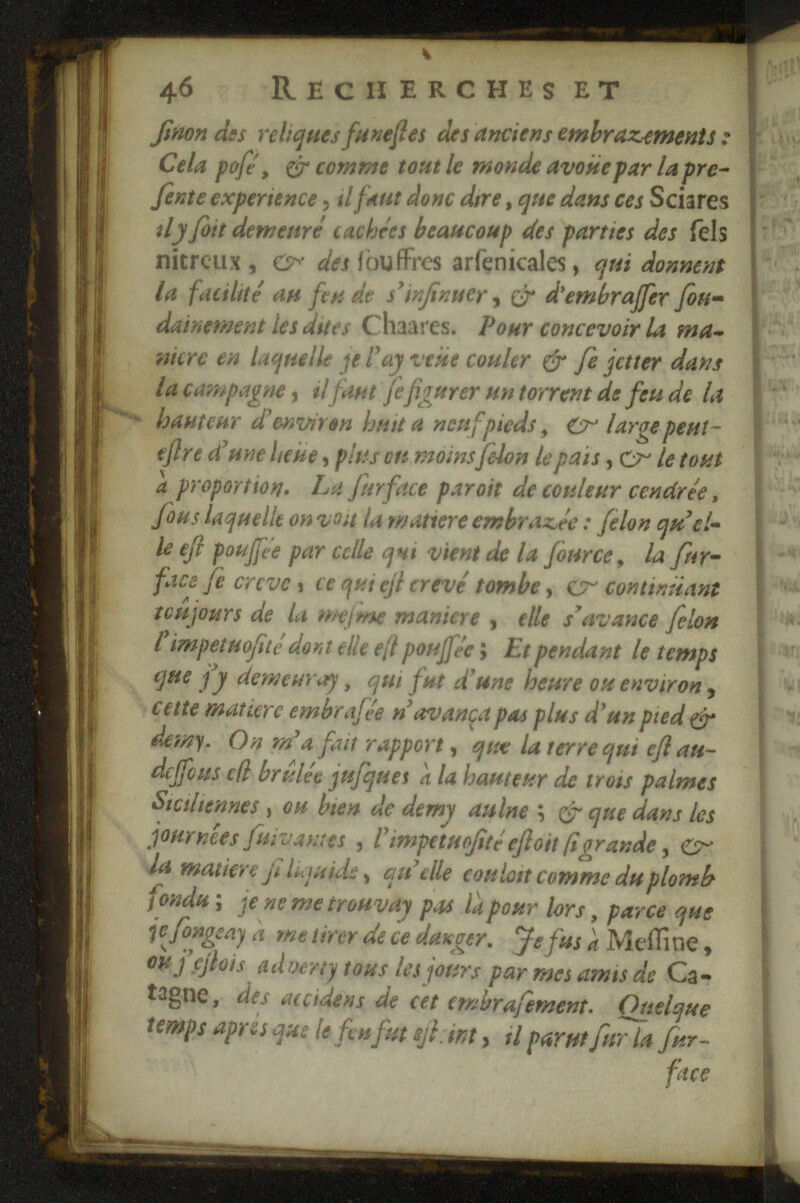 46 RECHERCHES ET
ſinon des reliques funeſtes des anciens embrazements :
Cela poſé, & comme tout le monde avoüe par la pre-
ſente experience, il faut donc dire, que dans ces Sciares
il y ſoit demeuré cachées beaucoup des parties des ſels
nitreux, & des ſouffres arſenicales, qui donnent
la facilité au feu de s'inſinuer, & d'embraſſer ſou-
dainement les dites Chaares. Pour concevoir la ma-
niere en laquelle je l'ay veüe couler & ſe jetter dans
la campagne, il faut ſe figurer un torrent de feu de la
hauteur d'environ huit a neuf pieds, & large peut-
eſtre d'une lieüe, plus ou moins ſelon le païs, & le tout
à proportion. La ſurface paroit de couleur cendrée,
ſous laquelle on voit la matiere embrazée : ſelon qu'el-
le eſt pouſſée par celle qui vient de la ſource, la ſur-
face ſe creve, ce qui eſt crevé tombe, & continüant
toûjours de la meſme maniere, elle s'avance ſelon
l'impetuoſité dont elle eſt pouſſée ; Et pendant le temps
que j'y demeuray, qui fut d'une heure ou environ,
cette matiere embraſée n'avança pas plus d'un pied &
demy. On m'a fait rapport, que la terre qui eſt au-
deſſous eſt brûlée juſques à la hauteur de trois palmes
Siciliennes, ou bien de demy aulne ; & que dans les
journées ſuivantes, l'impetuoſité eſtoit ſi grande, &
la matiere ſi liquide, qu'elle couloit comme du plomb
fondu ; je ne me trouvay pas là pour lors, parce que
je ſongeay à me tirer de ce danger. Je fus à Meſſine,
où j'eſtois adverty tous les jours par mes amis de Ca-
tagne, des accidens de cet embraſement. Quelque
temps aprés que le feu fut eſt int, il parut ſur la ſur-
face